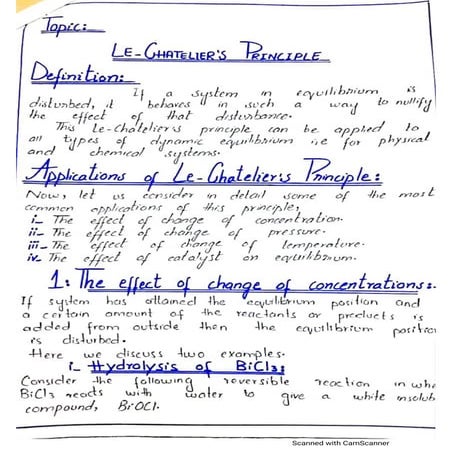 Topic:
LE-CHATELIER'S PRINCIPLE
Definition:
If a system in equilibrium is
disturbed, it behaves in such a way to nullify
the effect of that disturbance.
This Le-Chatelier;s principle can be applied to
all types of dynamic equilibrium i.e for physical
and chemical systems.
Applications of Le-Chatelier;s Principle:
Now, let us consider in detail some of the most
common applications of this principle;
i- The effect of change of concentration.
ii- The effect of change of pressure.
iii- The effect of change of temperature.
iv- The effect of catalyst on equilibrium.
1: The effect of change of concentrations:.
If system has attained the equilibrium position and
a certain amount of the reactants or products is
added from outside then the equilibrium position
is disturbed.
Here we discuss two examples.
i- Hydrolysis of BiCl3:
Consider the following reversible reaction in whe
BiCl3 reacts with water to give a white insolub
compound, BiOCl.
Scanned with CamScanner